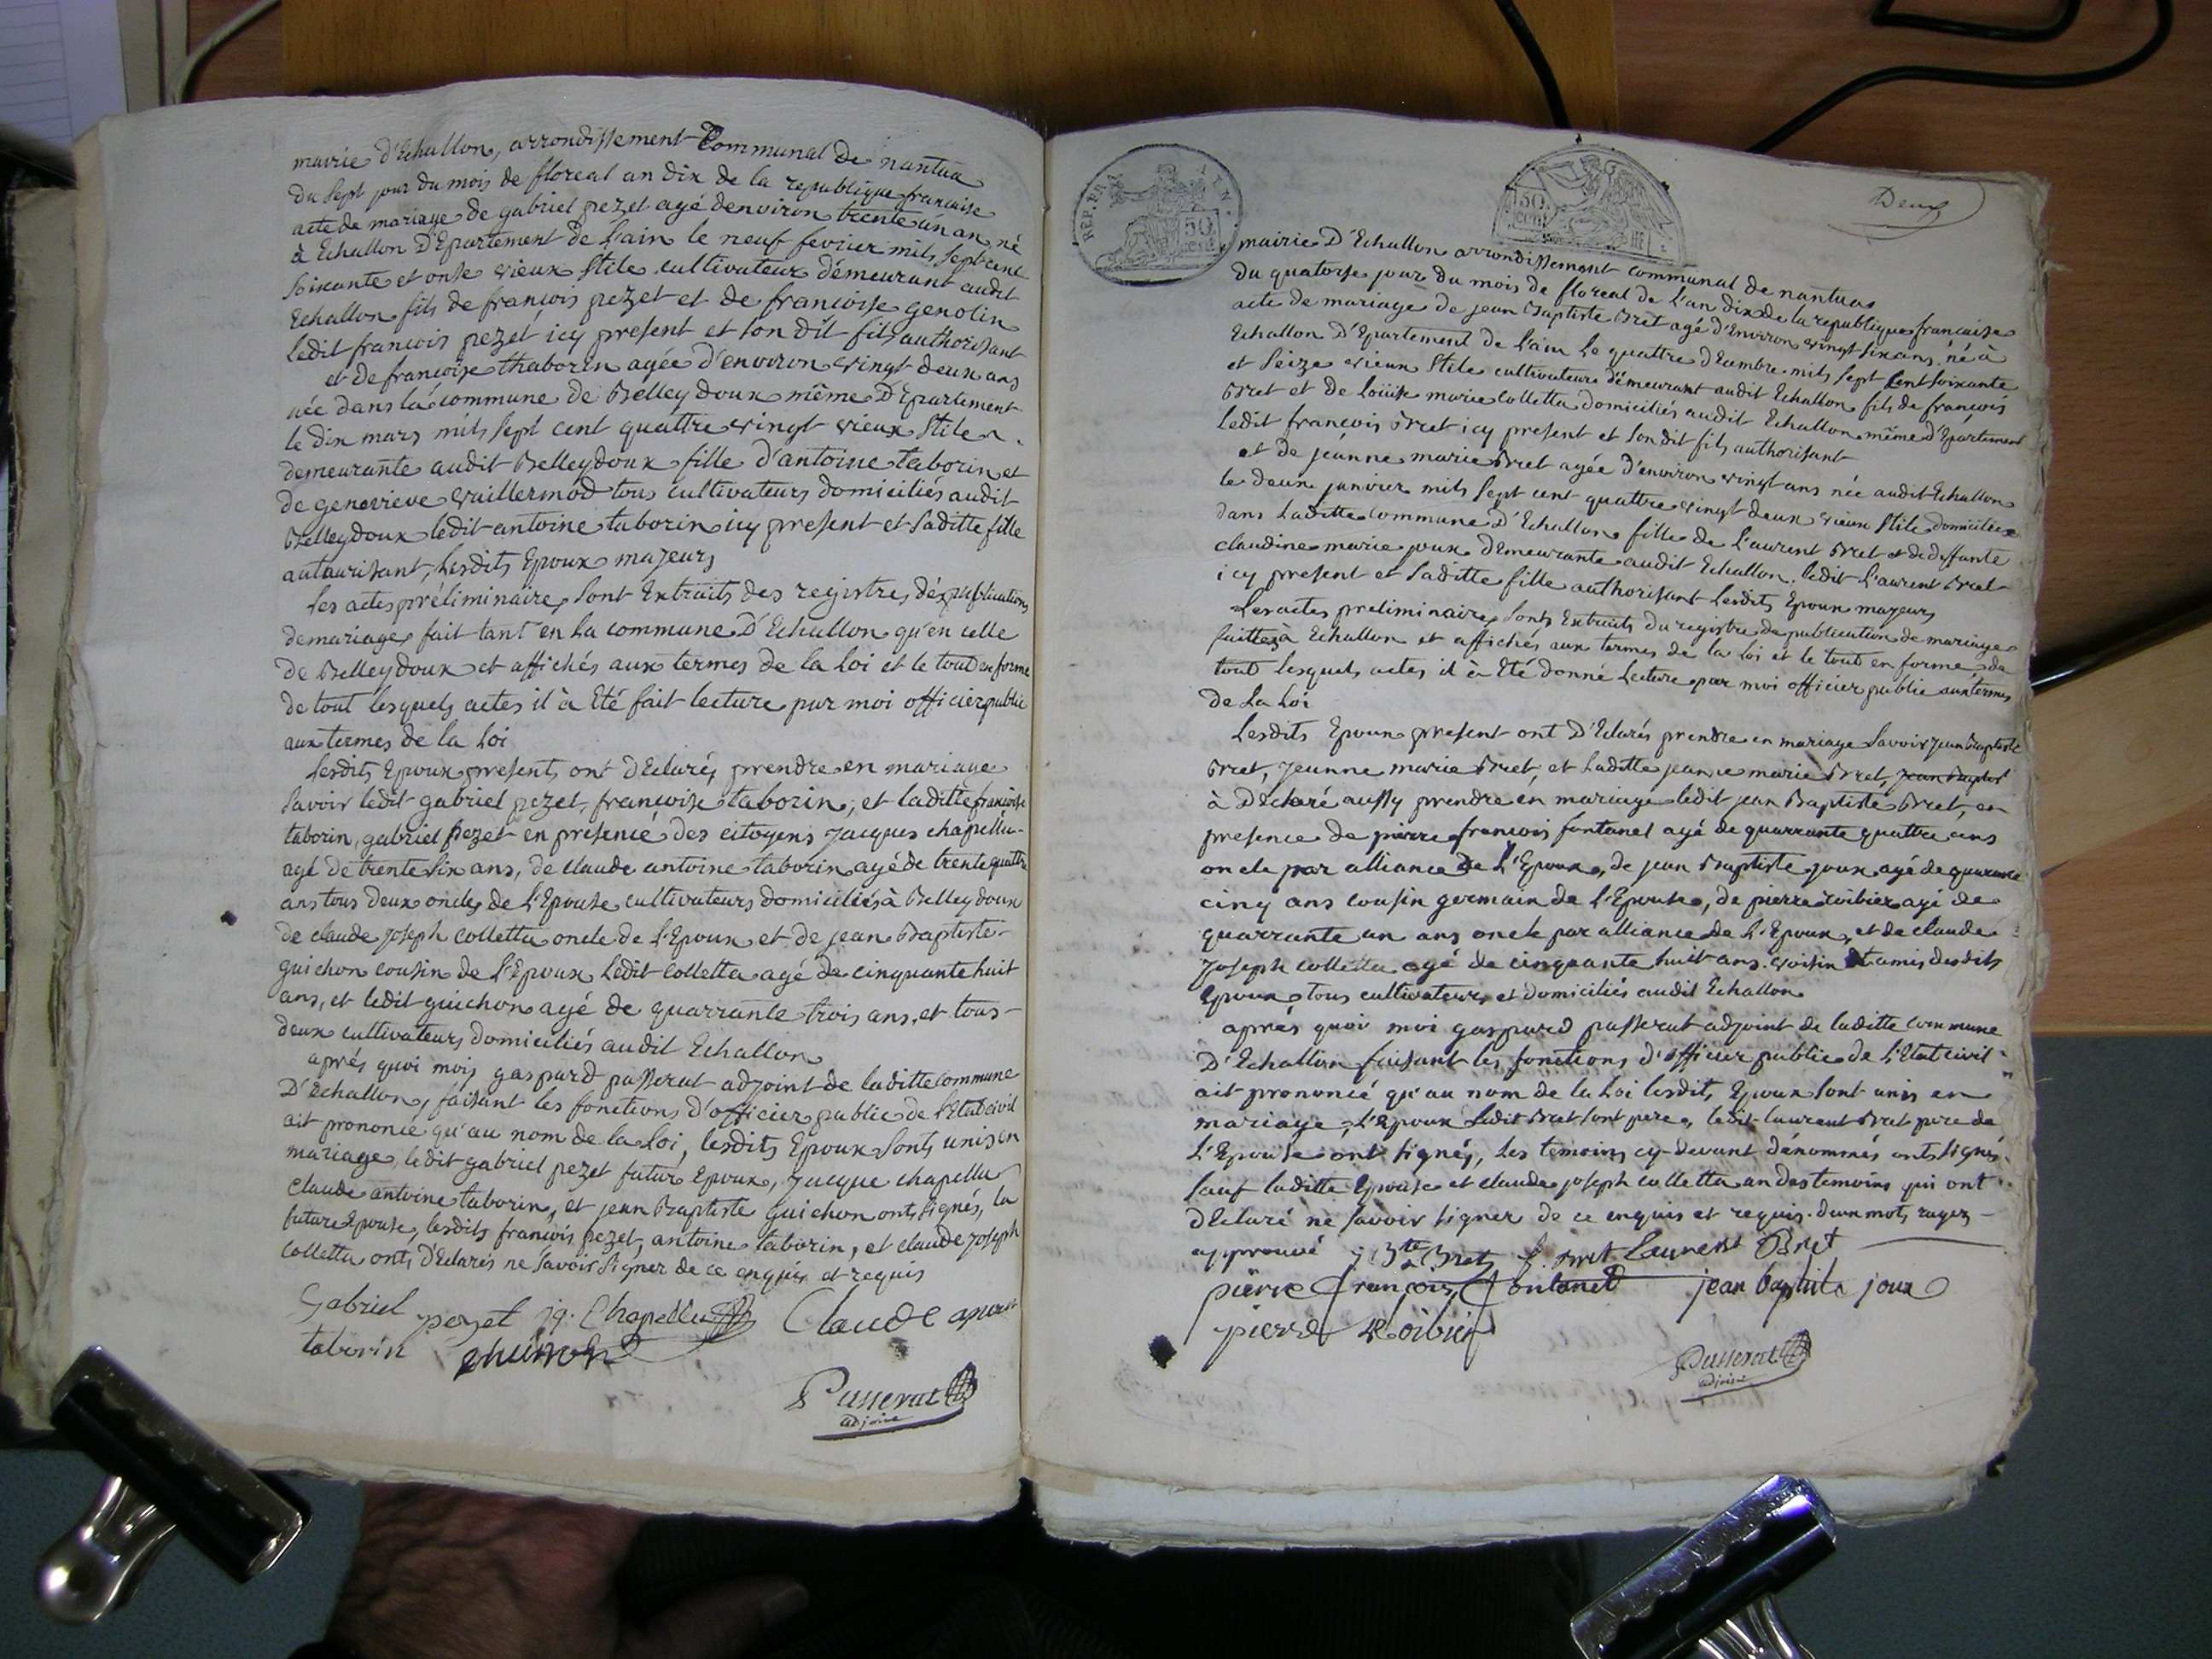 mairie d'Echallon, arrondissement Communal de nantua
du sept jour du mois de floreal an dix de la republique francaise
acte de mariage de gabriel pezet agé denviron trente un an, né
à Echallon D'Epartement de L'ain le neuf fevrier mils sept cent
soixante et onse vieux stile cultivateur démeurant audit
Echallon fils de francois pezet et de francoise genolin
Ledit francois pezet icy present et son dit fils authorisant
et de francoise thaborin agée d'environ vingt deux ans
née dans la commune de Belleydoux même D'Epartement
le dix mars mils sept cent quattre vingt vieux stile
demeurante audit Belleydoux fille d'antoine taborin et
de genevieve vuillermod tous cultivateurs domiciliés audit
Belleydoux ledit antoine taborin icy present et saditte fille
autaurisant, lesdits Epoux majeurs
Les actes préliminaires sont Extraits des registres dés publications
de mariage fait tant en la commune D'Echallon qu'en celle
de Belleydoux et affichés aux termes de la loi et le tout en forme
de tout lesquels actes il à été fait lecture par moi officier public
aux termes de la Loi
Lesdits Epoux presents ont déclarés prendre en mariage
savoir ledit gabriel pezet, francoise taborin, et laditte francoise
taborin, gabriel pezet en présence des citoyens jacques chapellu
agé de trente six ans, de claude antoine taborin agé de trente quattre
ans tous deux oncles de l'Epouse cultivateurs domiciliés à Belleydoux
de claude joseph colletta oncle de L'Epoux et de jean Baptiste
guichon cousin de l'Epoux Ledit colletta agé de cinquante huit
ans, et ledit guichon agé de quarrante trois ans, et tous
deux cultivateurs domiciliés audit Echallon
aprés quoi mois gaspard passerat adjoint de laditte commune
D'échallon, faisant les fonctions d'officier public de l'Etat civil
ait prononcé qu'au nom de la Loi, lesdits Epoux sont unis en
mariage, ledit gabriel pezet futur Epoux, jacque chapellu
claude antoine taborin, et jean Baptiste guichon ont signés, la
future Epouse, lesdits francois pezet, antoine taborin, et claude joseph
Colletta onts D'Eclarés ne savoir signer de ce enquis et requis
Gabriel pezet jq. Chapellu Claude
taborin
Passerat
adjoint
REP. FRA
50
cent
50
cent
Deux
mairie D'Echallon arrondissement communal de nantua
du quatorse jour du mois de floreal de l'an dix de la republique francaise
acte de mariage de jean Baptiste Bret agé d'Environ vingt six ans, né à
Echallon D'Epartement de l'ain Le quattre Décembre mils sept Cent soixante
et seize vieux stile cultivateur démeurant audit Echallon fils de francois
Bret et de Loüise marie colletta domiciliés audit Echallon même D'Epartement
Ledit francois Bret icy present et son dit fils authorisant
et de jeanne marie Bret agée d'environ vingt ans née audit Echallon
le deux janvier mils sept cent quattre vingt deux vieux stile domiciliée
dans laditte commune D'Echallon fille de Laurent Bret et de deffunte
claudine marie joux demeurante audit Echallon. ledit Laurent Bret
icy present et saditte fille authorisant lesdits Epoux majeurs
Les actes preliminaires sonts Extraits du registre de publication de mariage
faittes à Echallon et affichés aux termes de la loi et le tout en forme, de
tout lesquels actes il à été donné Lecture par moi officier public aux termes
de La Loi
Lesdits Epoux present ont D'Eclarés prendre en mariage savoir jean Baptiste
Bret, jeanne marie Bret, et Laditte jeanne marie Bret, jean Baptist
à Déclaré aussy prendre en mariage ledit jean Baptiste Bret, en
presence de pierre francois fontanet agé de quarrante quattre ans
oncle par alliance de L'Epoux, de jean Baptiste joux agé de quarrante
cinq ans cousin germain de l'Epouse, de pierre Roibier agé de
quarrante un ans oncle par alliance de L'Epoux, et de claude
joseph colletta agé de cinquante huit ans voisin et amis desdits
Epoux, tous cultivateurs et domiciliés audit Echallon
aprés quoi moi gaspard passerat adjoint de laditte commune
D'Echallon faisant les fonctions d'officier public de l'Etat civil
ait prononcé qu'au nom de la Loi lesdits Epoux sont unis en
mariage, L'Epoux Ledit Bret sont pere, ledit laurent Bret pere de
L'Epouse ont signés, Les temoins cy-devant dénommés onts signés
sauf laditte Epouse et claude joseph colletta un des temoins qui ont
déclaré ne savoir signer de ce enquis et requis. deux mots rayez
approuvé j Bte Bret f. Bret Laurent Bret
pierre francois fontanet jean baptiste joux
pierre Roibier
Passerat
adjoint